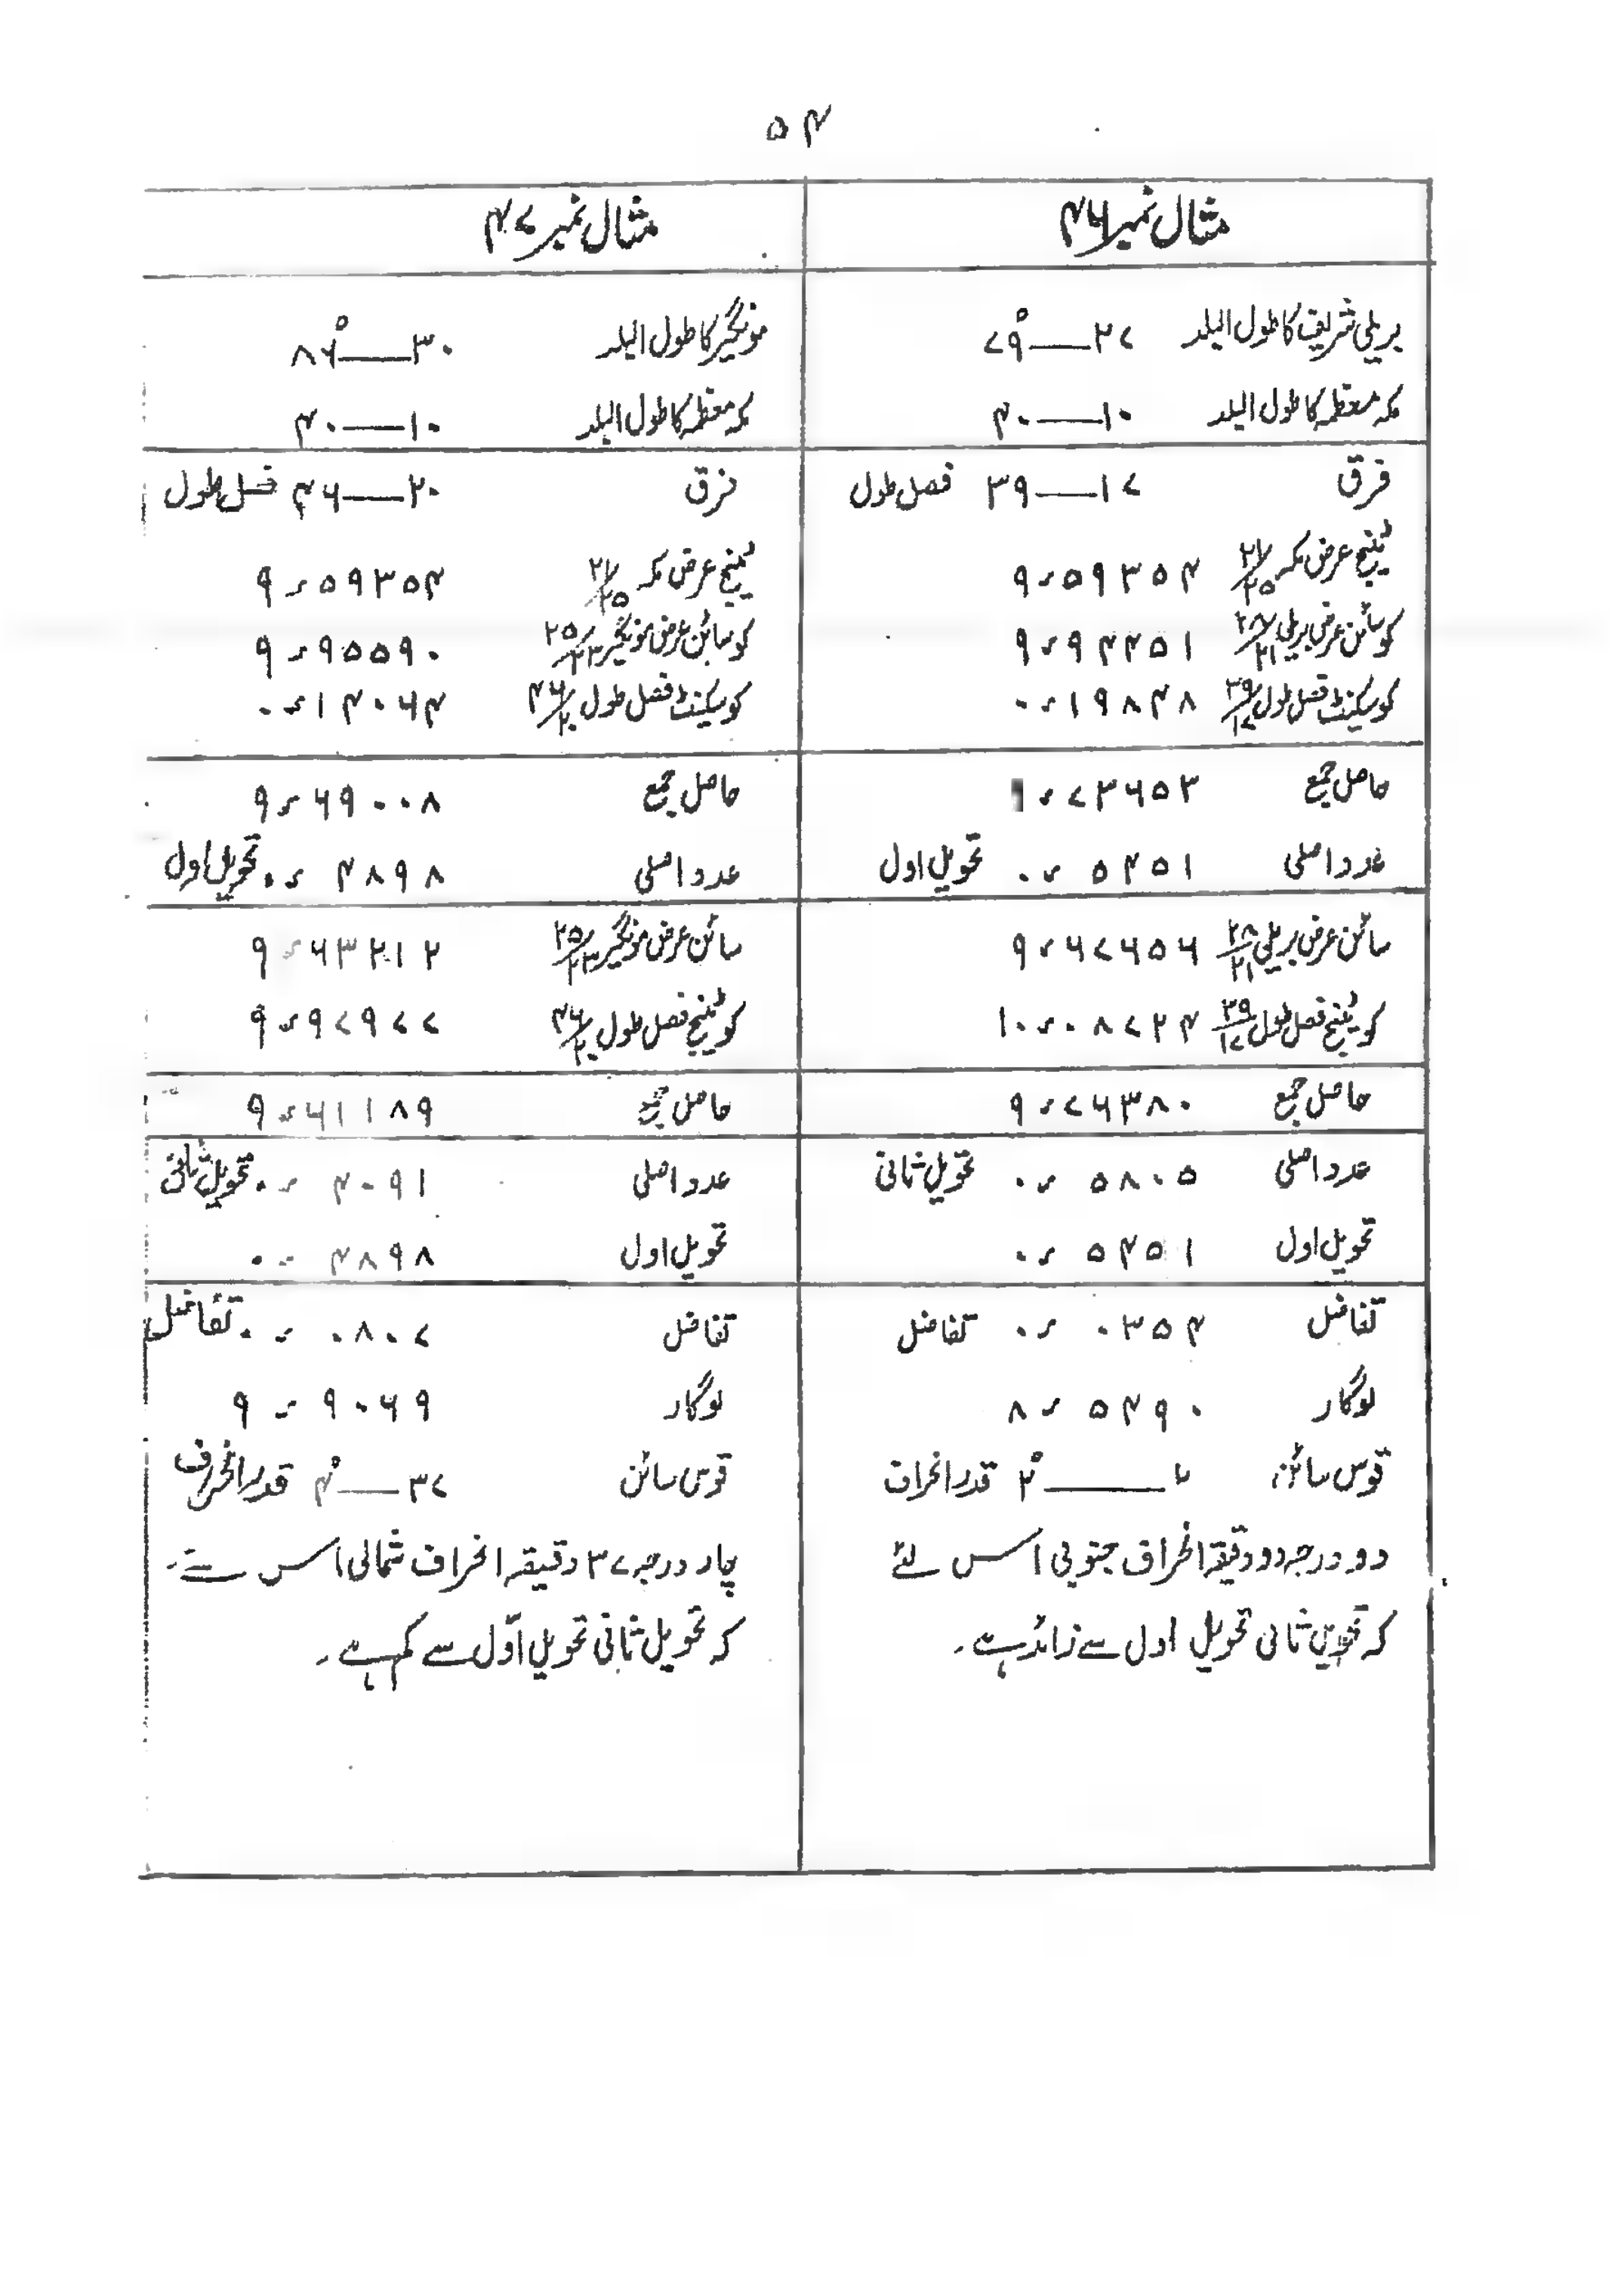 ۵۴
مثال نمبر ۴۶
بریلی شریف کا طول البلد ۲۷——۷۹°
مکہ معظمہ کا طول البلد ۱۰——۴۰
فرق ۱۷——۳۹ فصل طول
ٹینج عرض مکہ ۲۱/۲۵ ۹ء۵۹۳۵۴
کوسائن عرض بریلی ۲۸/۲۱ ۹ء۹۴۴۵۱
کوسیکنٹ فصل طول ۳۹/۱۷ ۰ء۱۹۸۴۸
حاصل جمع ۹ء۷۳۶۵۳
عدد اصلی ۰ء۵۴۵۱ تحویل اول
سائن عرض بریلی ۲۸/۲۱ ۹ء۶۷۶۵۶
کوٹینج فصل طول ۳۹/۱۷ ۱۰ء۰۸۷۲۴
حاصل جمع ۹ء۷۶۳۸۰
عدد اصلی ۰ء۵۸۰۵ تحویل ثانی
تحویل اول ۰ء۵۴۵۱
تفاضل ۰ء۰۳۵۴ تفاضل
لوگار ۸ء۵۴۹۰
قوس سائن ۲——۲° قدر انحراف
دو درجہ دو دقیقہ انحراف جنوبی اس لئے
کہ تحویل ثانی تحویل اول سے زائد ہے۔
مثال نمبر ۴۷
مونگیر کا طول البلد ۳۰——۸۶°
مکہ معظمہ کا طول البلد ۱۰——۴۰
فرق ۲۰——۴۶ فصل طول
ٹینج عرض مکہ ۲۱/۲۵ ۹ء۵۹۳۵۴
کوسائن عرض مونگیر ۲۵/۲۳ ۹ء۹۵۵۹۰
کوسیکنٹ فصل طول ۴۶/۲۰ ۰ء۱۴۰۶۴
حاصل جمع ۹ء۶۹۰۰۸
عدد اصلی ۰ء۴۸۹۸ تحویل اول
سائن عرض مونگیر ۲۵/۲۳ ۹ء۶۳۲۱۲
کوٹینج فصل طول ۴۶/۲۰ ۹ء۹۷۹۷۷
حاصل جمع ۹ء۶۱۱۸۹
عدد اصلی ۰ء۴۰۹۱ تحویل ثانی
تحویل اول ۰ء۴۸۹۸
تفاضل ۰ء۰۸۰۷ تفاضل
لوگار ۹ء۹۰۶۹
قوس سائن ۳۷——۴° قدر انحراف
چار درجہ ۳۷ دقیقہ انحراف شمالی اس لئے۔
کہ تحویل ثانی تحویل اوّل سے کم ہے۔